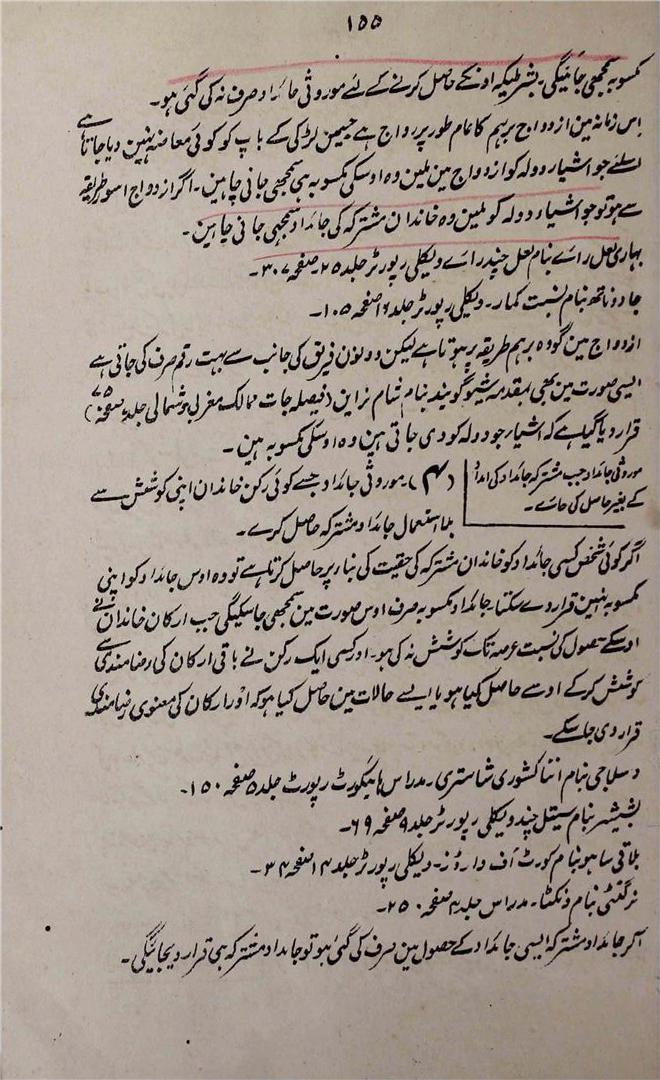 ۱۵۵
مکسوبہ سمجھی جائیگی۔ بشرطیکہ اونکے حاصل کرنے کے لئے موروثی جائداد صرف نہ کی گئی ہو۔
اس زمانہ مین ازدواج برہم کا عام طور پر رواج ہے جسمین لڑکی کے باپ کو کوئی معاضہ نہین دیا جاتا ہے
اسلئے جو اشیار دولہ کو ازدواج مین ملین وہ اوسکی مکسوبہ ہی سمجھی جانی چاہین۔ اگر ازدواج اسو طریقہ
سے ہو تو جو اشیاء دولہ کو ملین وہ خاندان مشترکہ کی جائداد سمجھی جانی چاہین۔
بہاری لعل رائے بنام لعل چندرائے ویکلی رپورٹر جلد ۲۵ صفحہ ۳۰۷۔
جادوناتھ بنام بسنت کمار۔ ویکلی رپورٹر جلد ۱۶ صفحہ ۱۰۵۔
ازدواج مین گو وہ برہم طریقہ پر ہوتا ہے لیکن دولون فریق کی جانب سے بہت رقم صرف کی جاتی ہے
ایسی صورت مین بھی بمقدمہ شیو گوبند بنام شام نراین (فیصلہ جات ممالک مغربی و شمالی جلد ۷ صفحہ ۷۵)
قرار دیا گیا ہے کہ اشیار جو دولہ کو دی جاتی ہین وہ اوسکی مکسوبہ ہین۔
موروثی جائداد جب مشترکہ جائداد کی امداد
کے بغیر حاصل کی جائے۔
(۴)۔ موروثی جائداد جسے کوئی رکن خاندان اپنی کوشش سے
بلا استعمال جائداد مشترکہ حاصل کرے۔
اگر کوئی شخص کسی جائداد کو خاندان مشترکہ کی حقیت کی بنار پر حاصل کرتا ہے تو وہ اوس جائداد کو اپنی
مکسوبہ نہین قرار دے سکتا جائداد مکسوبہ صرف اوس صورت مین سمجھی جاسکیگی جب ارکان خاندان نے
اوسکے حصول کی نسبت عرصہ تک کوشش نہ کی ہو۔ اور کسی ایک رکن نے باقی ارکان کی رضامندی سے
کوشش کرکے اوسے حاصل کیا ہو یا ایسے حالات مین حاصل کیا ہو کہ اور ارکان کی معنوی رضامندی
قرار دی جاسکے۔
وسلاجی بنام انتا کشوری شاستری۔ مدراس ہائیکورٹ رپورٹ جلد ۵ صفحہ ۱۵۰۔
بشیشر بنام سیتل چند ویکلی رپورٹر جلد ۹ صفحہ ۶۹۔
بلاقی ساہو بنام کورٹ آف وارڈز۔ ویکلی رپورٹر جلد ۱۴ صفحہ ۳۴۔
نرگنٹی بنام ونکٹا۔ مدراس جلد ۴ صفحہ ۲۵۰۔
اگر جائداد مشترکہ ایسی جائداد کے حصول مین صرف کی گئی ہو تو جائداد مشترکہ ہی قرار دیجائیگی۔